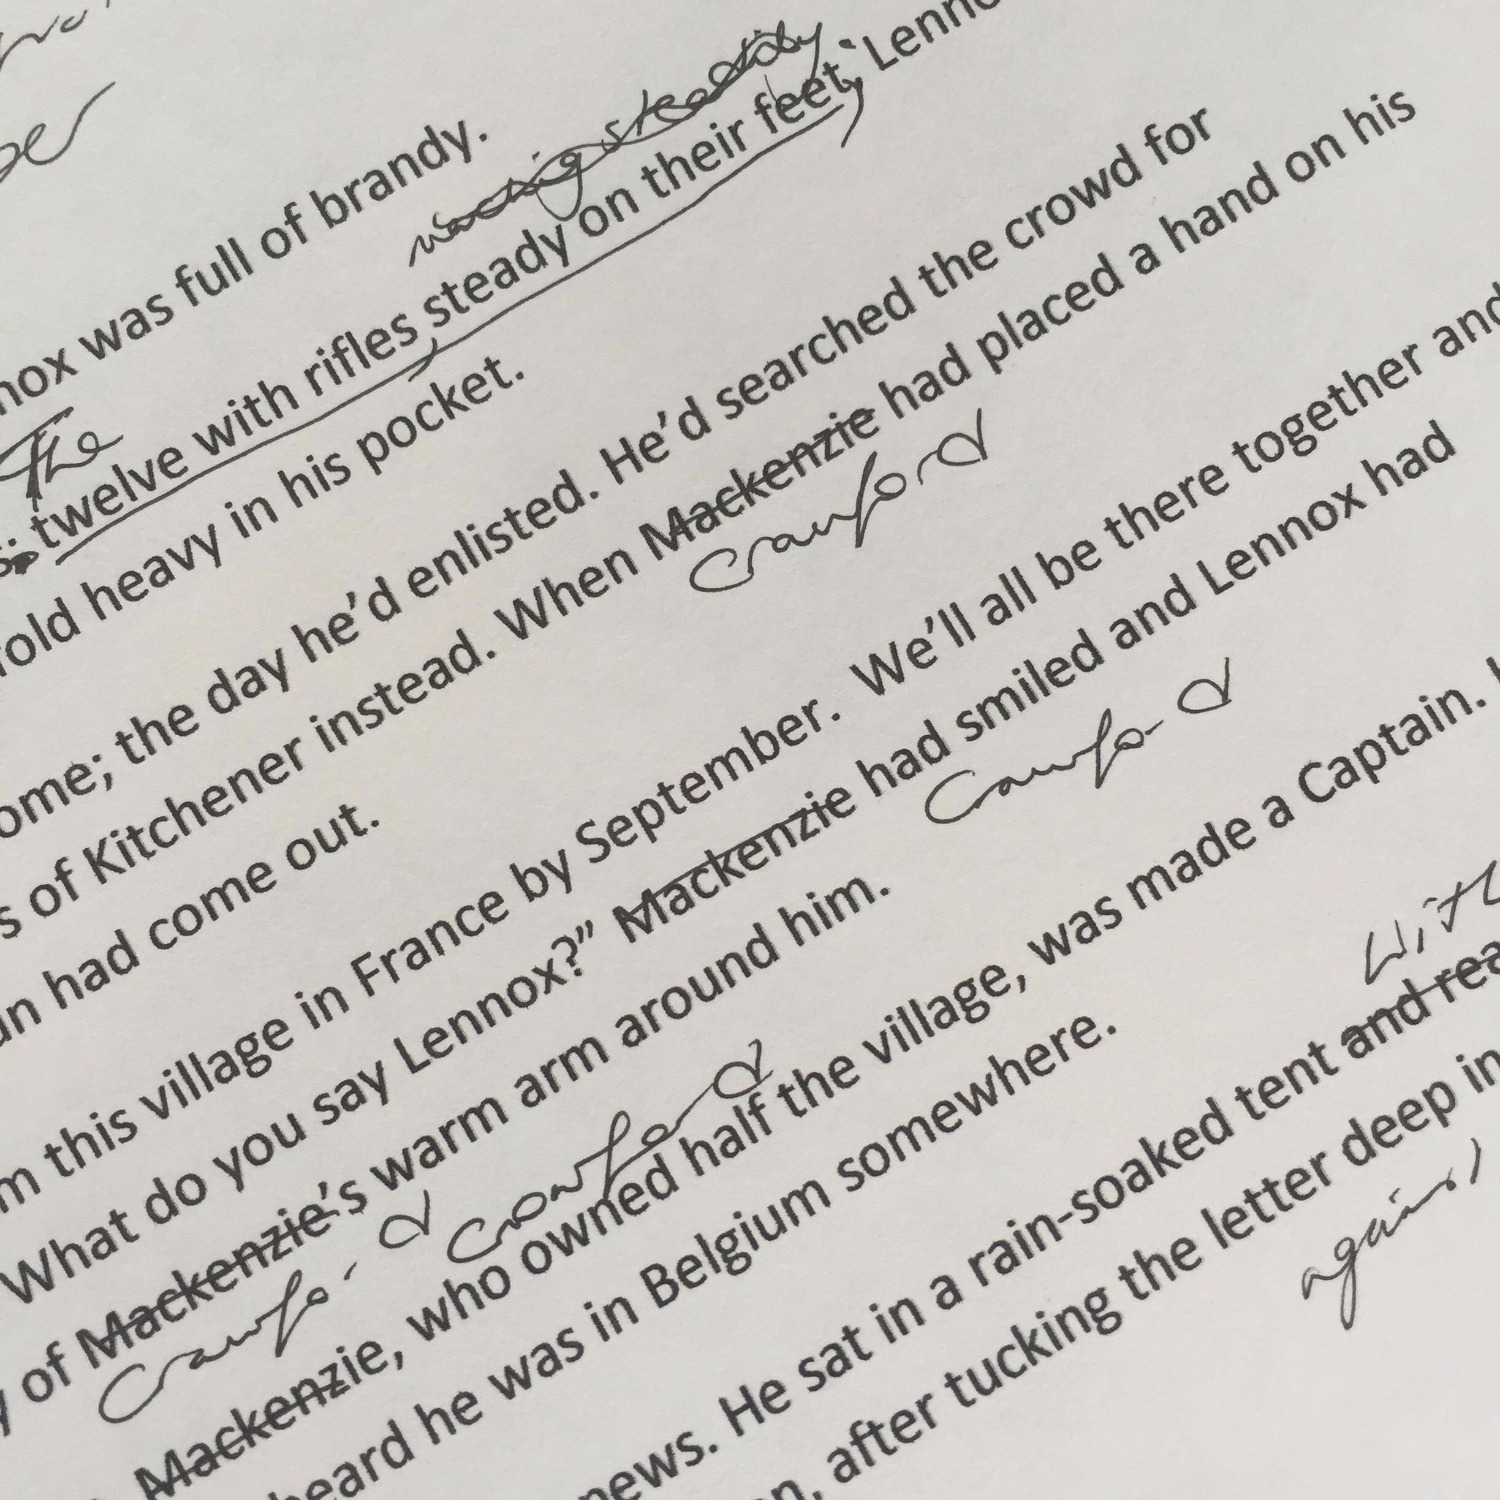 was full of brandy.
The
twelve with rifles steady on their feet,
heavy in his pocket.
the day he'd enlisted. He'd searched the crowd for
of Kitchener instead. When Mackenzie had placed a hand on his
Crawford
had come out.
this village in France by September. We'll all be there together and
What do you say Lennox?” Mackenzie had smiled and Lennox had
Crawford
of Mackenzie's warm arm around him.
Crawford
Crawford
Mackenzie, who owned half the village, was made a Captain.
heard he was in Belgium somewhere.
news. He sat in a rain-soaked tent and
after tucking the letter deep in
again,